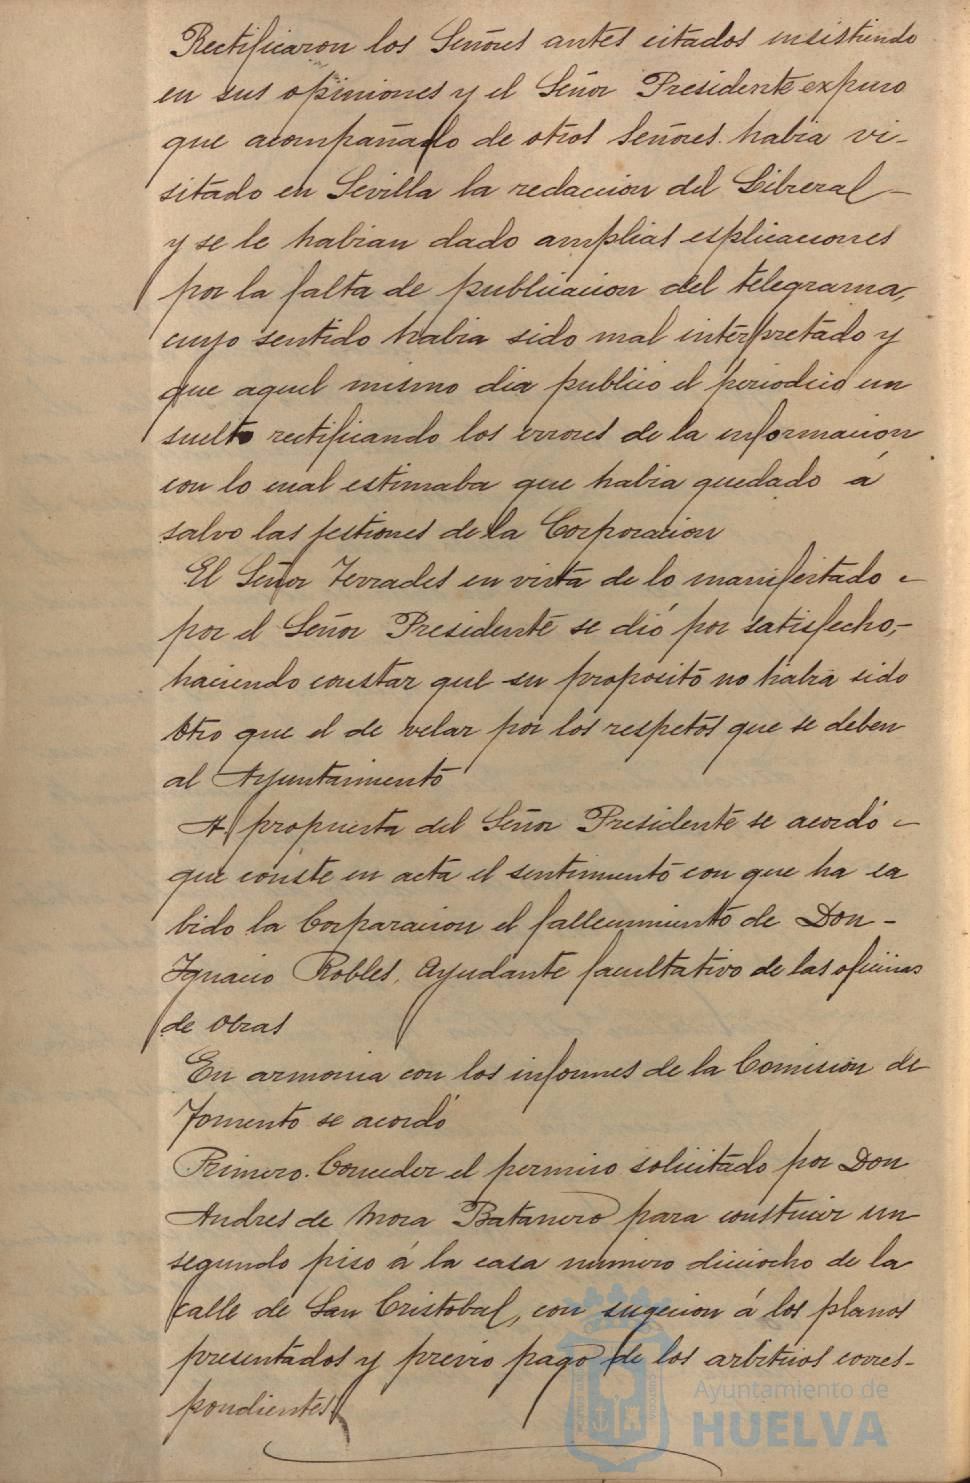 Rectificaron los Señores antes citados insistiendo
en sus opiniones y el Señor Presidente expuso
que acompañado de otros Señores habia vi-
sitado en Sevilla la redaccion del Liberal
y se le habian dado amplias esplicaciones
por la falta de publicacion del telegrama,
cuyo sentido habia sido mal interpretado y
que aquel mismo dia publico el periodico un
suelto rectificando los errores de la informacion
con lo cual estimaba que habia quedado á
salvo las gestiones de la Corporacion
El Señor Terrades en vista de lo manifestado
por el Señor Presidente se dió por satisfecho,-
haciendo constar que su proposito no habia sido
otro que el de velar por los respetos que se deben
al Ayuntamiento
A propuesta del Señor Presidente se acordó
que conste en acta el sentimiento con que ha sa
bido la Corporacion el fallecimiento de Don -
Ignacio Robles, Ayudante facultativo de las oficinas
de obras
En armonia con los informes de la Comision de
Fomento se acordó
Primero. Conceder el permiso solicitado por Don
Andres de Mora Batanero para construir un
segundo piso á la casa numero dieciocho de la
calle de San Cristobal, con sugecion á los planos
presentados y previo pago de los arbitrios corres-
pondientes
Ayuntamiento de
HUELVA